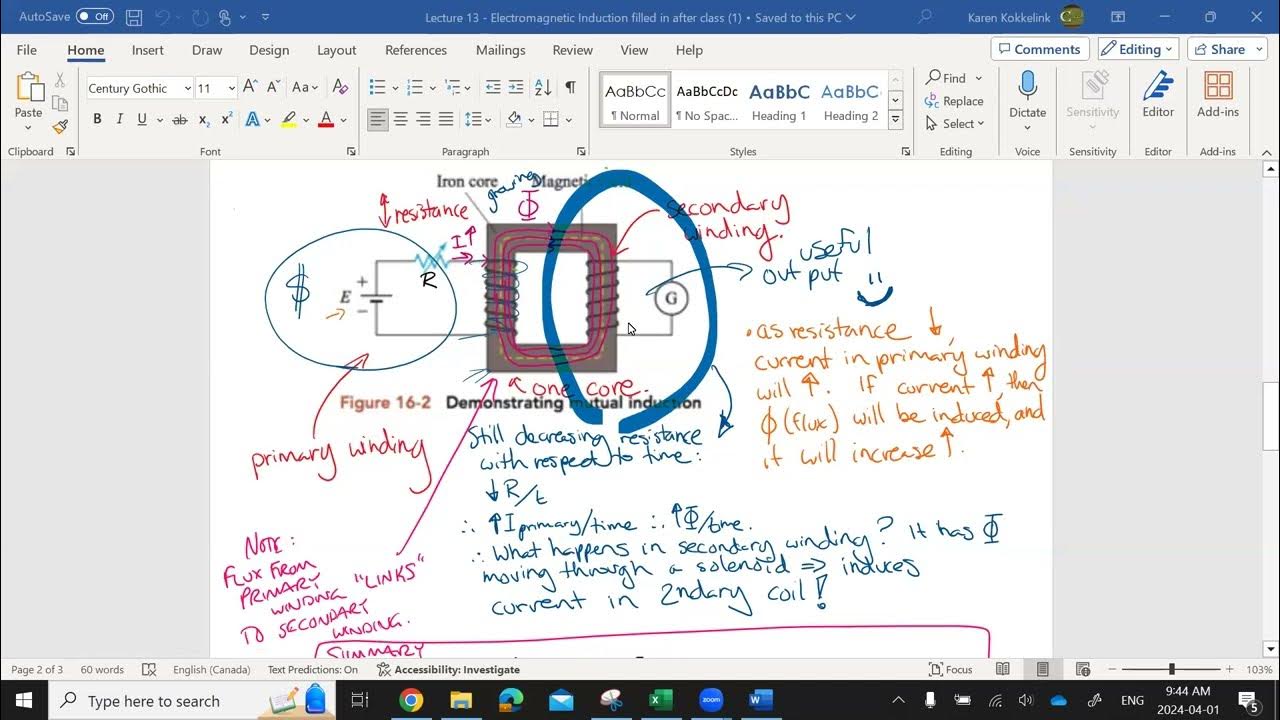 AutoSave Off
Lecture 13 - Electromagnetic Induction filled in after class (1) • Saved to this PC
Karen Kokkelink
File Home Insert Draw Design Layout References Mailings Review View Help
Comments Editing Share
Paste
Century Gothic 11 A A Aa A
B I U ab x₂ x² A A
AaBbCc AaBbCcDc AaBbC AaBbC
¶ Normal ¶ No Spac... Heading 1 Heading 2
Find
Replace
Select
Dictate Sensitivity Editor Add-ins
Clipboard Font Paragraph Styles Editing Voice Sensitivity Editor Add-ins
Iron core Magnetic
growing
Φ
↕ resistance
I↑
R
$
+
E
−
G
secondary
winding.
useful
out put
↑ one core.
Figure 16-2 Demonstrating mutual induction
primary winding
• as resistance ↓,
current in primary winding
will ↑. If current ↑, then
ϕ (flux) will be induced, and
it will increase ↑.
Still decreasing resistance
with respect to time:
↓R/t
∴ ↑I primary/time ∴ ↑Φ/time.
∴ What happens in secondary winding? It has Φ
moving through a solenoid ⇒ induces
current in 2ndary coil!
NOTE:
FLUX FROM
PRIMARY
WINDING "LINKS"
TO SECONDARY
WINDING.
SUMMARY
Page 2 of 3 60 words English (Canada) Text Predictions: On Accessibility: Investigate Focus 103%
Type here to search
zoom
ENG
9:44 AM
2024-04-01
5